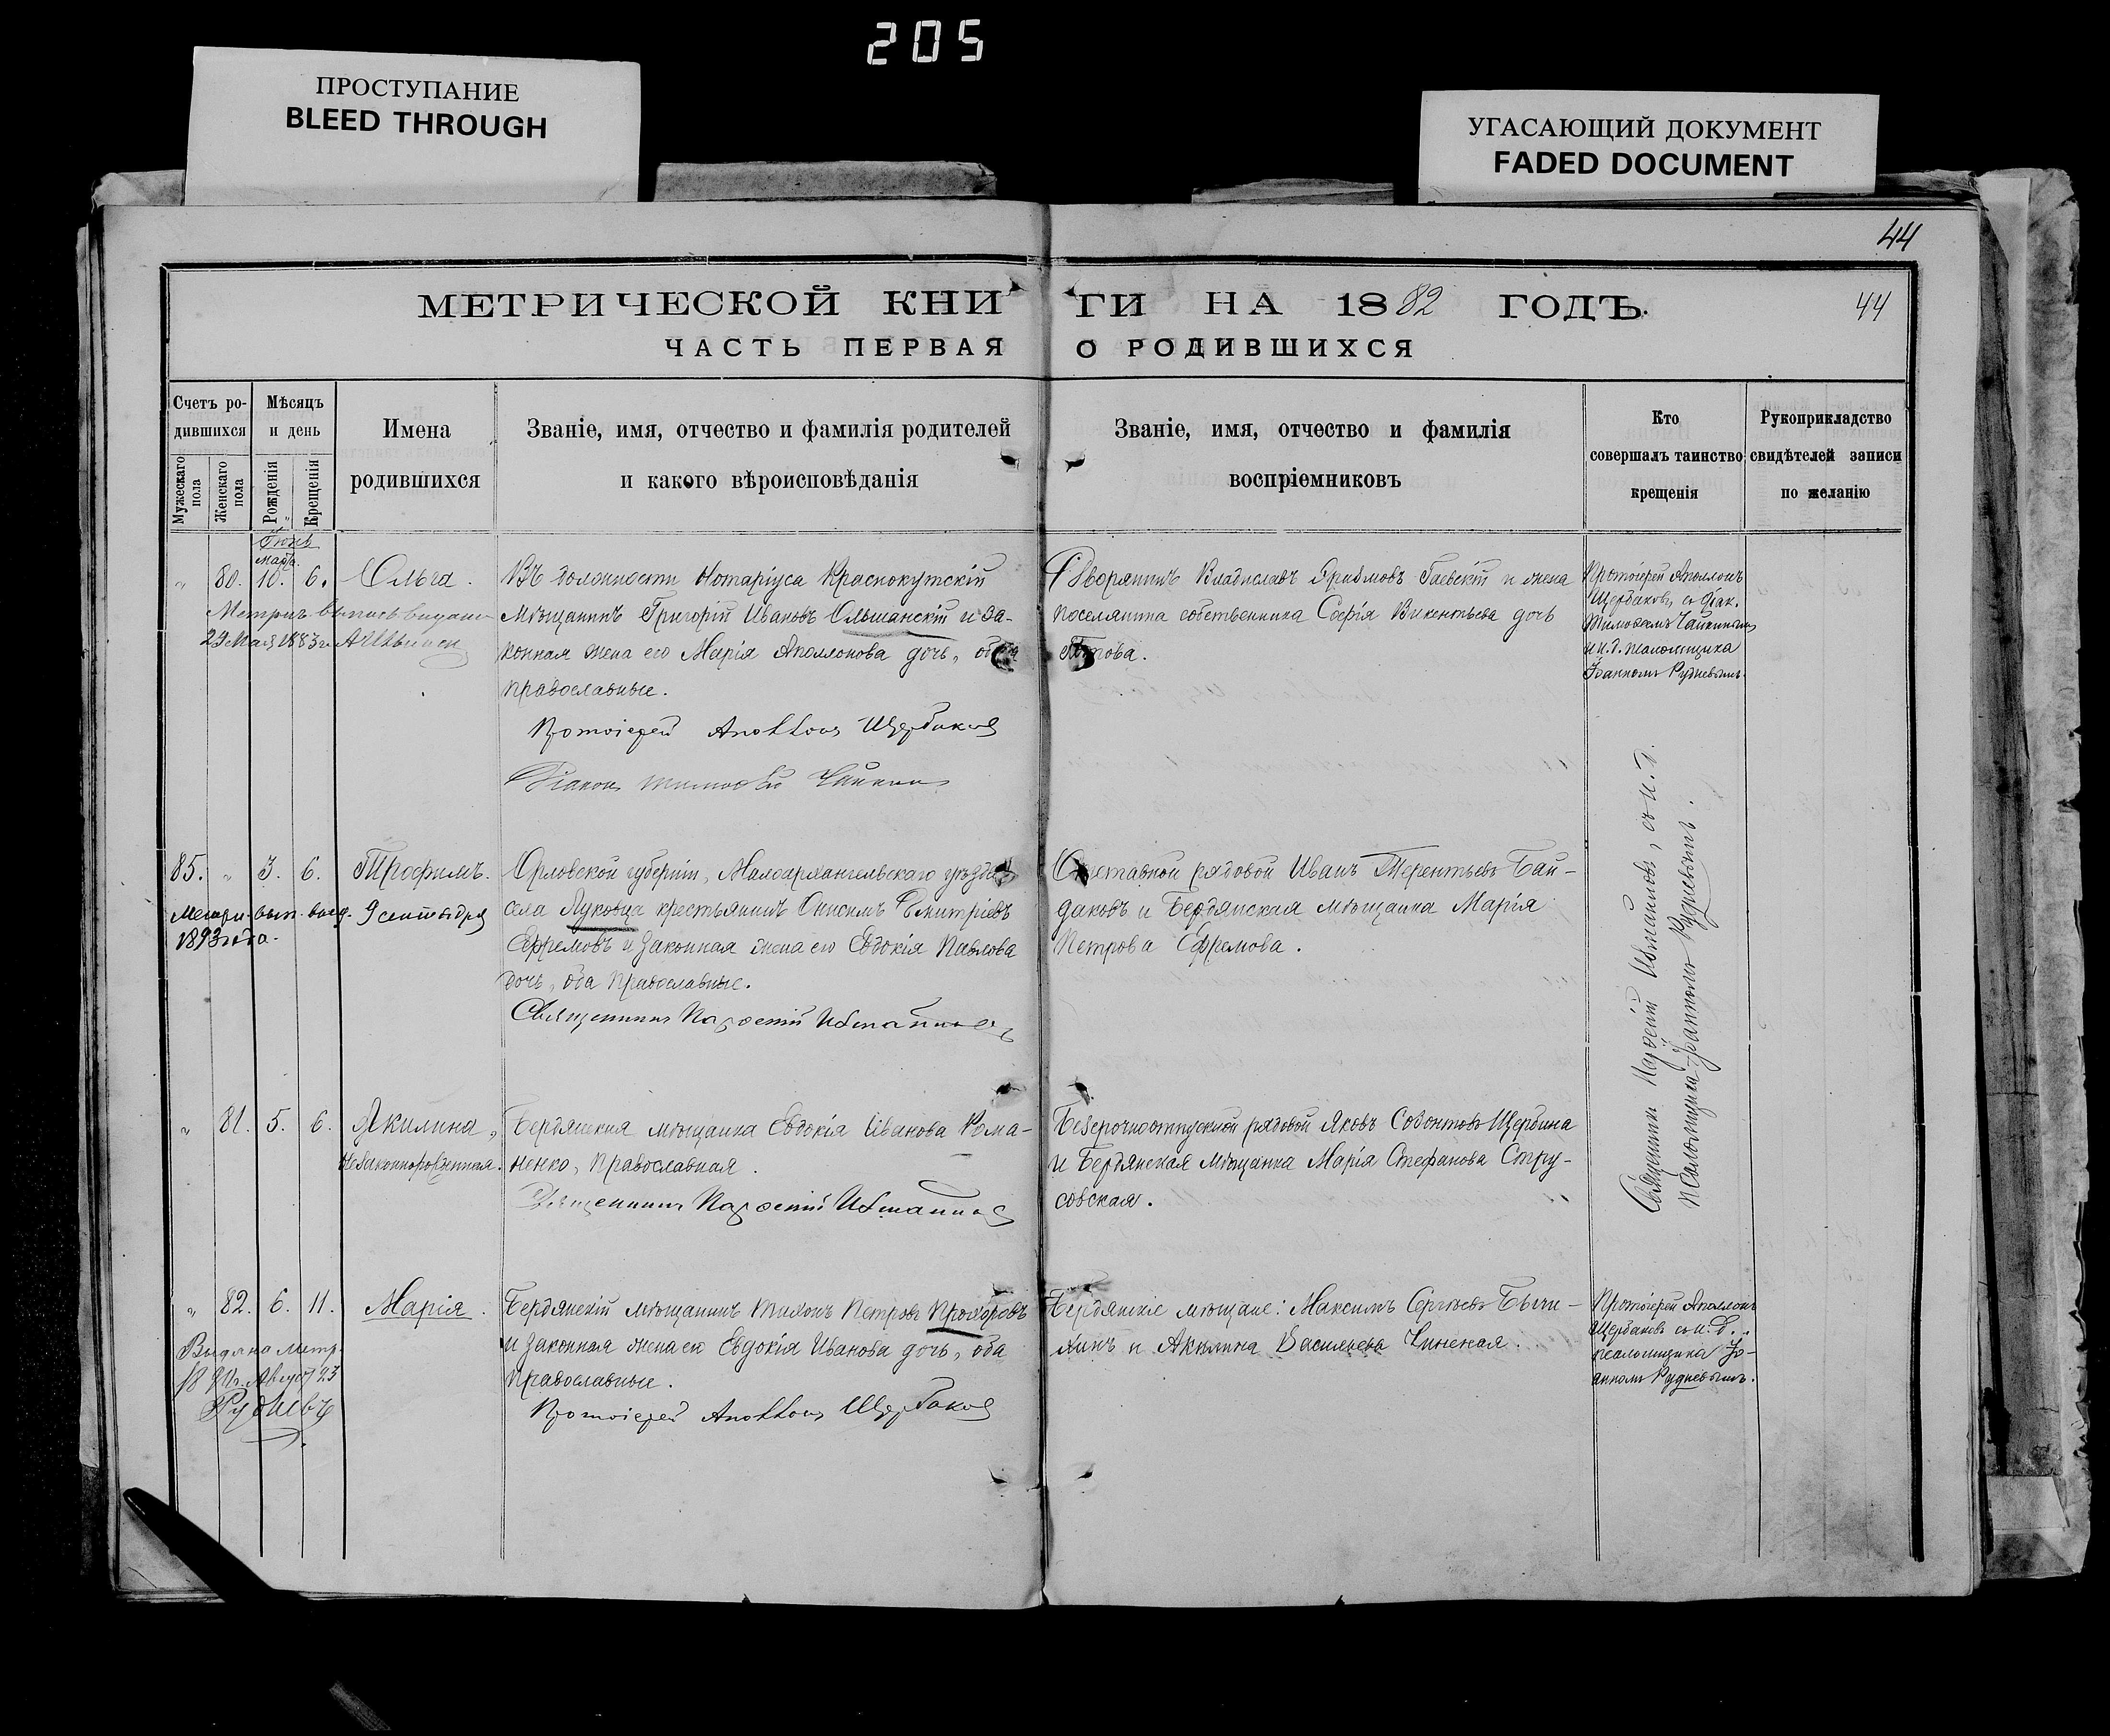 205
ПРОСТУПАНИЕ
BLEED THROUGH
УГАСАЮЩИЙ ДОКУМЕНТ
FADED DOCUMENT
44
МЕТРИЧЕСКОЙ КНИГИ НА 1882 ГОДЪ.
44
ЧАСТЬ ПЕРВАЯ О РОДИВШИХСЯ
Счетъ ро-
дившихся
Мужескаго пола
Женскаго пола
Мѣсяцъ
и день
Рожденія
Крещенія
Имена
родившихся
Званіе, имя, отчество и фамилія родителей
и какого вѣроисповѣданія
Званіе, имя, отчество и фамилія
воспріемниковъ
Кто
совершалъ таинство
крещенія
Рукоприкладство
свидѣтелей записи
по желанію
Іюнь
Марта
„ 80. 10. 6. Ольга.
Метрич. выпись выдана
29 Мая 1883 г.
Въ должности Нотаріуса Краснокутскій
мѣщанинъ Григорій Ивановъ Ольшанскій и за-
конная жена его Марія Аполлонова дочь, оба
православные.
Протоіерей Аполлонъ Щербаковъ
Діаконъ Тимофей Чайкинъ
Дворянинъ Владиславъ Гаевскій и жена
поселянина собственника Софія Викентьева дочь
Протоіерей Аполлонъ
Щербаковъ, съ діак.
Тимофеемъ Чайкинымъ
и и. д. псаломщика
Іоанномъ Рудневымъ.
85. „ 3. 6. Трофимъ.
Метри. вып. выд. 9 сентября
1893 года.
Орловской губерніи, Малоархангельскаго уѣзда
села Луковца крестьянинъ Онисимъ Дмитріевъ
Ефремовъ и законная жена его Евдокія Павлова
дочь, оба православные.
Священникъ
Отставной рядовой Иванъ Терентьевъ Бай-
даковъ и Бердянская мѣщанка Марія
Петрова Ефремова.
Священникъ съ и. д.
псаломщика Іоанномъ Рудневымъ.
„ 81. 5. 6. Акилина,
незаконнорожденная.
Бердянская мѣщанка Евдокія Иванова Рома-
ненко, православная.
Священникъ
Безсрочноотпускной рядовой Яковъ Щербина
и Бердянская мѣщанка Марія Стефанова Стру-
совская.
„ 82. 6. 11. Марія.
Выдана метр.
Рудневъ
Бердянскій мѣщанинъ Тихонъ Петровъ Прохоровъ
и законная жена его Евдокія Иванова дочь, оба
православные.
Протоіерей Аполлонъ Щербаковъ
Бердянскіе мѣщане: Максимъ Сергѣевъ Бычи-
хинъ и Акилина Васильева
Протоіерей Аполлонъ
Щербаковъ съ и. д.
псаломщика Іо-
анномъ Рудневымъ.